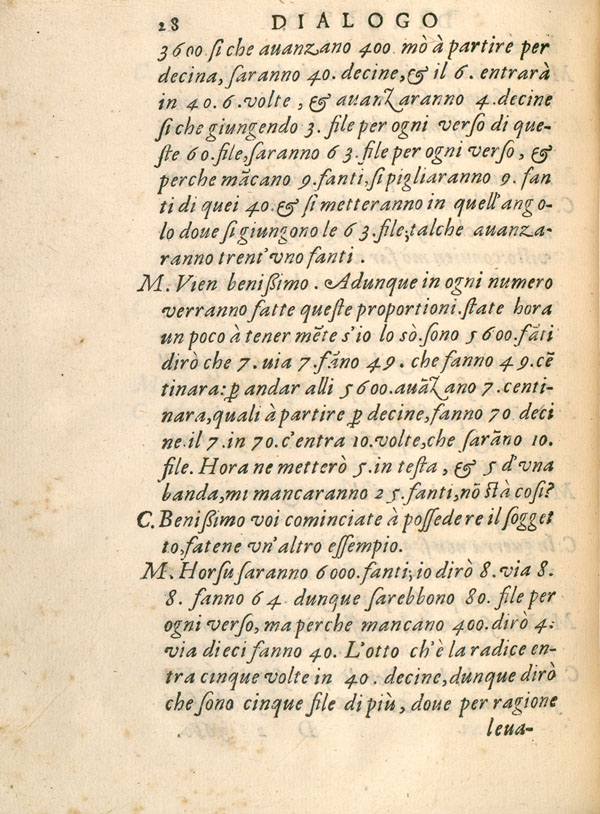 28 DIALOGO
3600 ſi che auanzano 400. mò à partire per
decina, ſaranno 40. decine, & il 6. entrarà
in 40. 6. volte, & auanzaranno 4. decine
ſi che giungendo 3. file per ogni verſo di que-
ſte 60. file, ſaranno 63. file per ogni verſo, &
perche mãcano 9. fanti, ſi pigliaranno 9. fan
ti di quei 40. & ſi metteranno in quell'ango-
lo doue ſi giungono le 63. file; talche auanza-
ranno trent'vno fanti.
M. Vien benißimo. Adunque in ogni numero
verranno fatte queſte proportioni. ſtate hora
un poco à tener mẽte s'io lo sò. ſono 5600. fãti
dirò che 7. uia 7. fãno 49. che fanno 49. cẽ
tinara: ꝑ andar alli 5600. auãzano 7. centi
nara, quali à partire ꝑ decine, fanno 70 deci
ne. il 7. in 70. c'entra 10. volte, che ſarãno 10.
file. Hora ne metterò 5. in teſta, & 5 d'vna
banda, mi mancaranno 25. fanti, nõ ſtà coſi?
C. Benißimo voi cominciate à poſſedere il ſogget
to, fatene vn'altro eſſempio.
M. Horsu ſaranno 6000. fanti; io dirò 8. via 8.
8. fanno 64 dunque ſarebbono 80. file per
ogni verſo, ma perche mancano 400. dirò 4.
via dieci fanno 40. L'otto ch'è la radice en-
tra cinque volte in 40. decine, dunque dirò
che ſono cinque file di più, doue per ragione
leua-